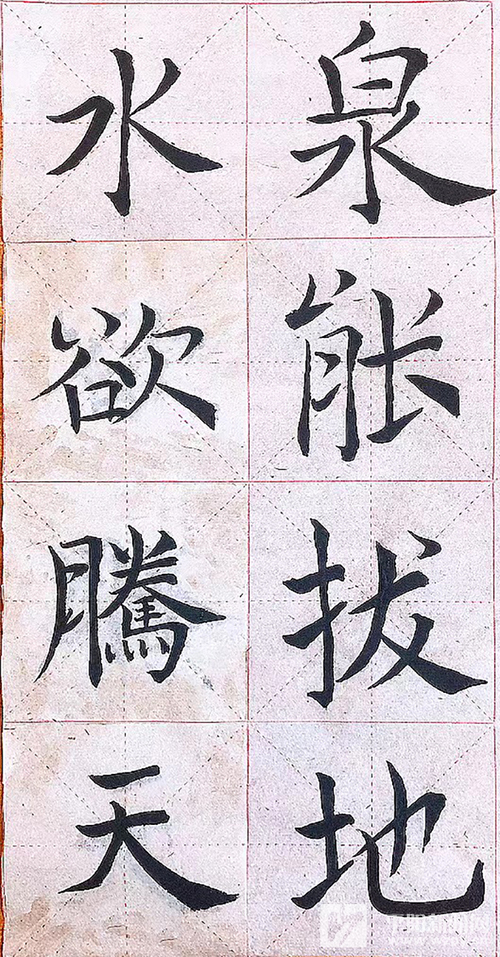 泉能拔地
水欲騰天